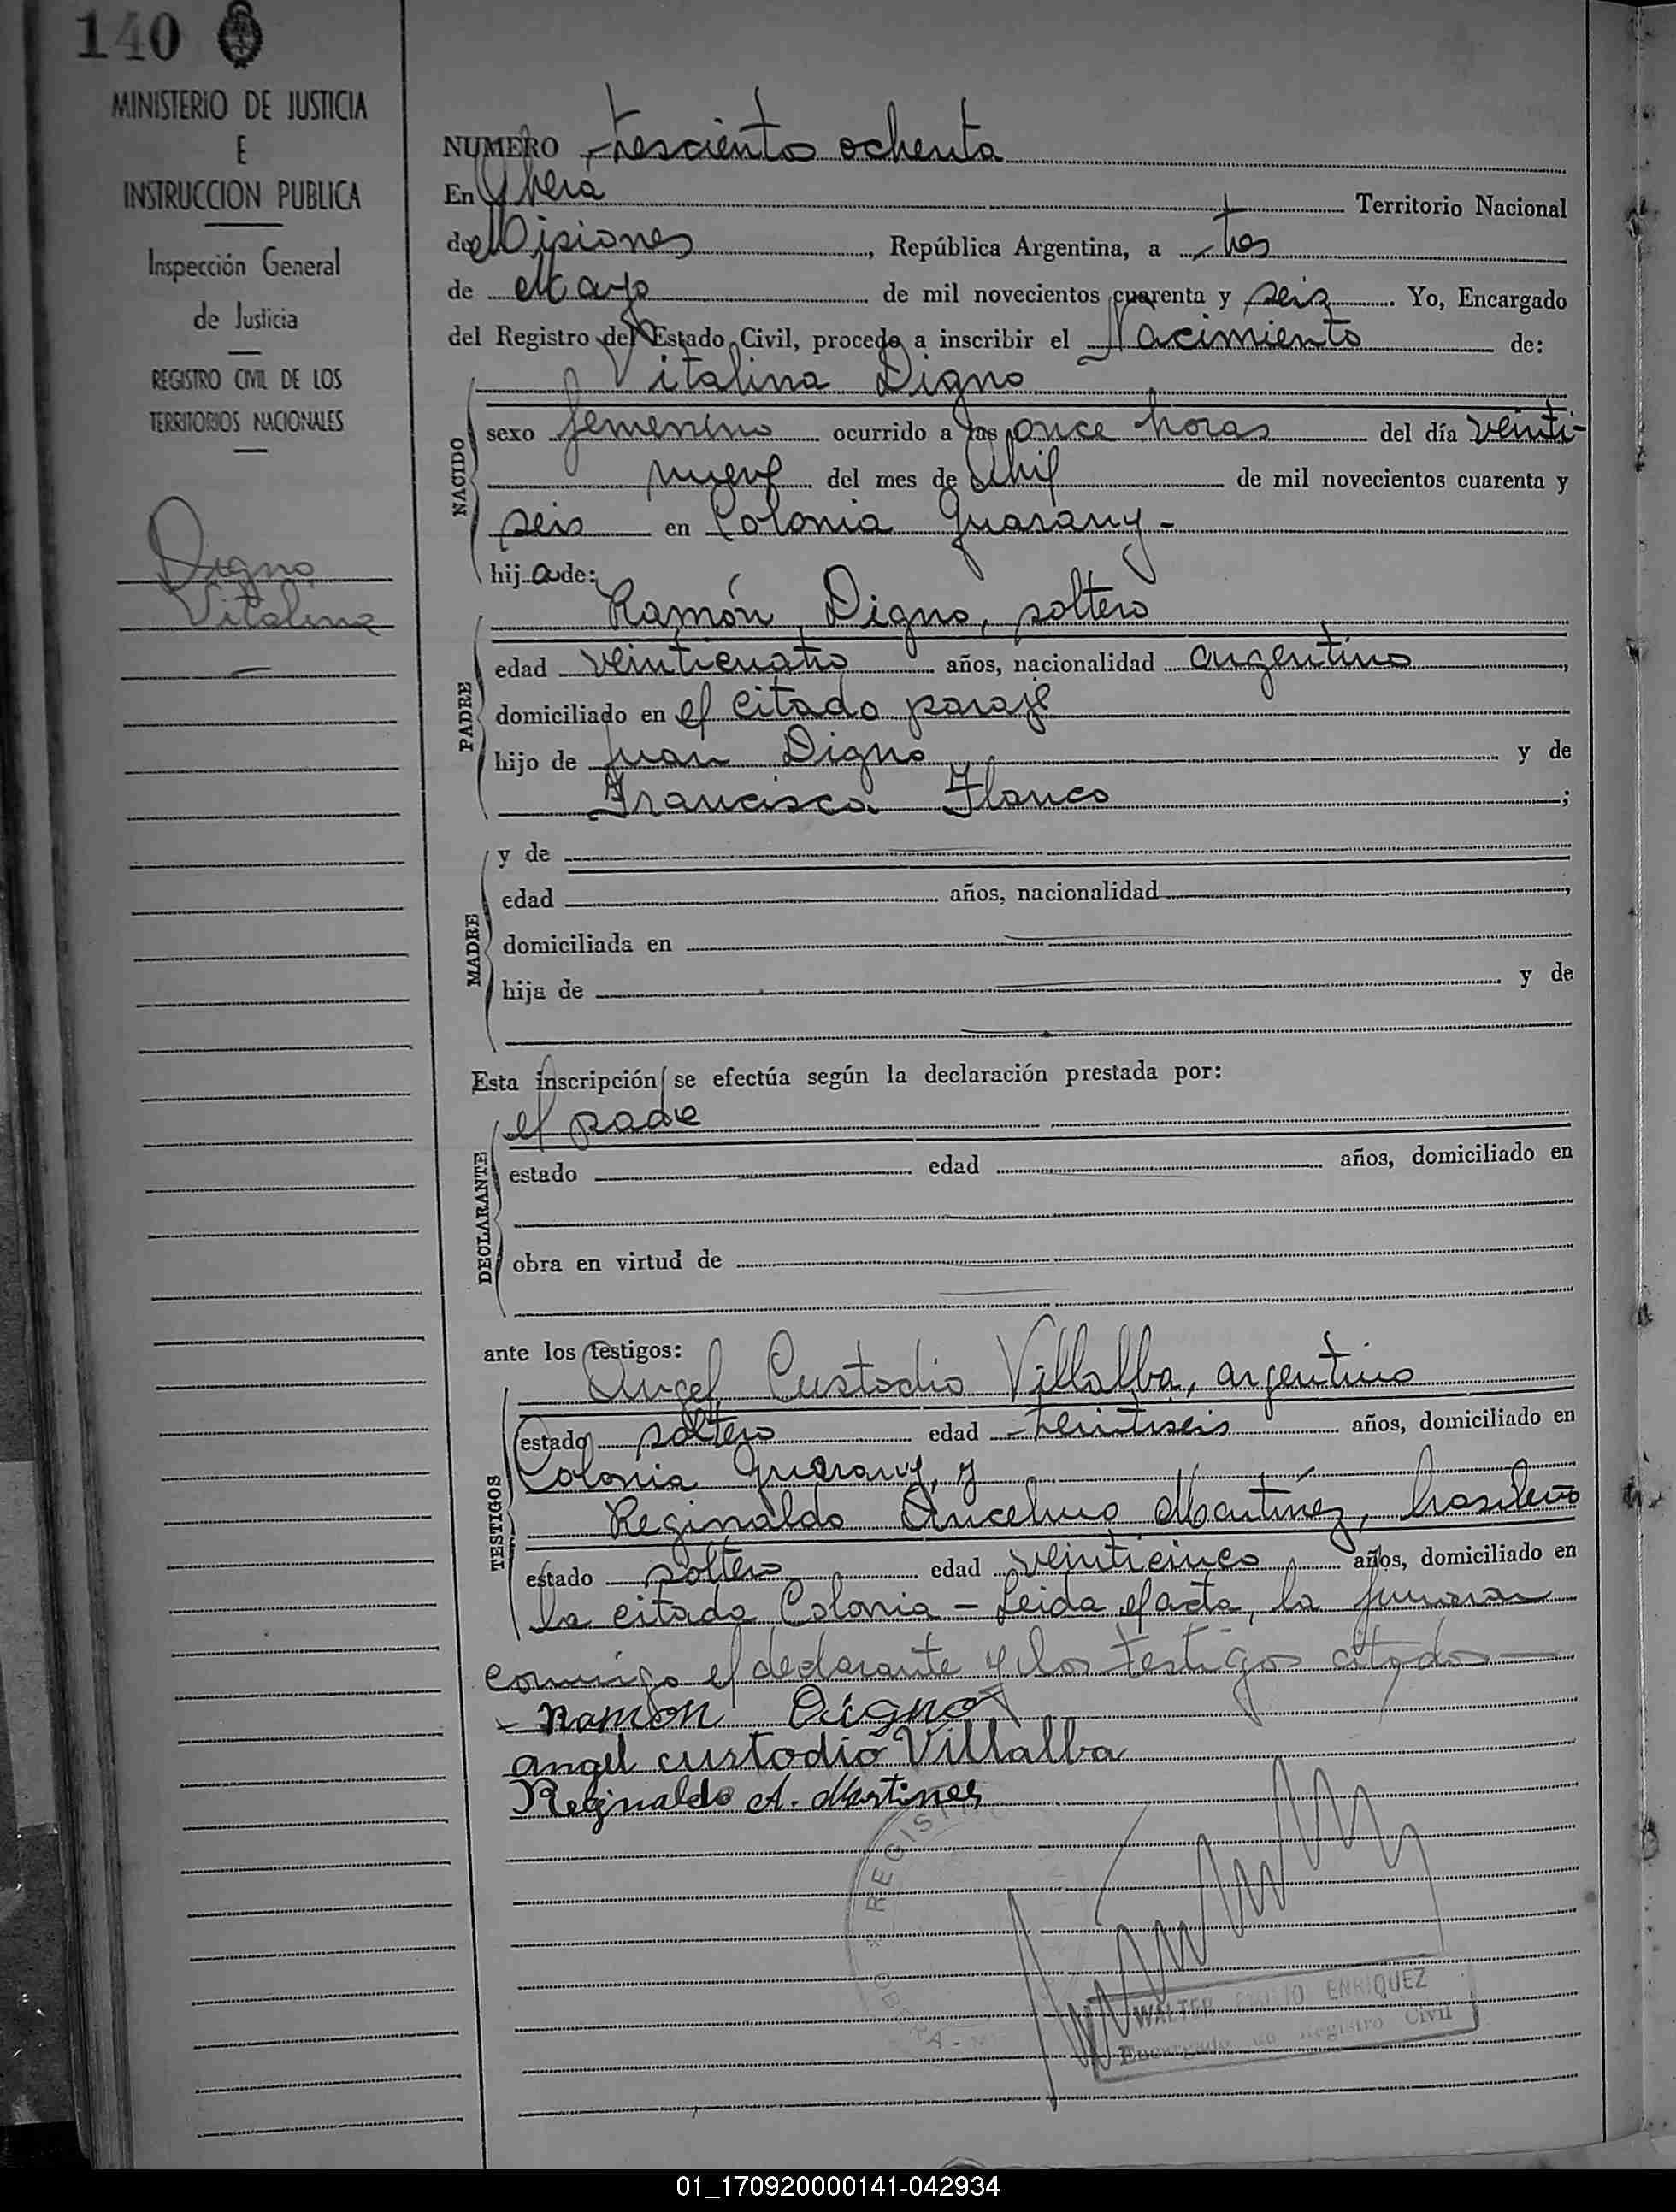 140
MINISTERIO DE JUSTICIA
E
INSTRUCCION PUBLICA
Inspección General
de Justicia
REGISTRO CIVIL DE LOS
TERRITORIOS NACIONALES
Digno
Vitalina
NUMERO trescientos ochenta
En Oberá Territorio Nacional
de Misiones, República Argentina, a tres
de Mayo de mil novecientos cuarenta y seis. Yo, Encargado
del Registro del Estado Civil, procedo a inscribir el Nacimiento de:
Vitalina Digno
NACIDO
sexo femenino ocurrido a las once horas del día veinti-
nueve del mes de Abril de mil novecientos cuarenta y
seis en Colonia Guarany-
hija de:
Ramón Digno, soltero
PADRE
edad veinticuatro años, nacionalidad argentino,
domiciliado en el citado paraje
hijo de Juan Digno y de
Francisca Franco;
MADRE
y de
edad años, nacionalidad,
domiciliada en
hija de y de
Esta inscripción se efectúa según la declaración prestada por:
el padre
DECLARANTE
estado edad años, domiciliado en
obra en virtud de
ante los testigos:
Angel Custodio Villalba, argentino
TESTIGOS
estado soltero edad años, domiciliado en
Colonia Guarany, y
Reginaldo Ancelmo Martínez, brasileño
estado soltero edad veinticinco años, domiciliado en
la citada Colonia - Leida el acta, la firmaron
conmigo el declarante y los testigos citados—
Ramon Digno
angel custodio Villalba
Reginaldo A. Martines
REGIST
OBERA - M
WALTER EMILIO ENRIQUEZ
Encargado de Registro Civil
01_170920000141-042934